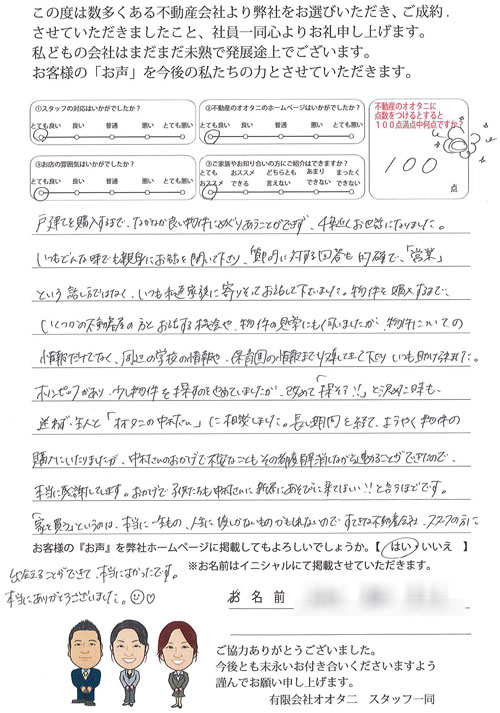 この度は数多くある不動産会社より弊社をお選びいただき、ご成約.
させていただきましたこと、社員一同心よりお礼申し上げます。
私どもの会社はまだまだ未熟で発展途上でございます。
お客様の「お声」を今後の私たちの力とさせていただきます。
①スタッフの対応はいかがでしたか？
とても良い 良い 普通 悪い とても悪い
②不動産のオオタニのホームページはいかがでしたか？
とても良い 良い 普通 悪い とても悪い
不動産のオオタニに
点数をつけるとすると
１００点満点中何点ですか？
100
点
③お店の雰囲気はいかがでしたか？
とても良い 良い 普通 悪い とても悪い
③ご家族やお知り合いの方にご紹介はできますか？
とてもおススメ おススメできる どちらとも言えない あまりできない まったくできない
戸建てを購入するまで、なかなか良い物件にめぐりあうことができず、4年近くお世話になりました。
いつもどんな時でも親身にお話を聞いて下さり、質問に対する回答も的確で、「営業」
という感じではなく、いつも私達家族に寄りそってお話して下さいました。物件を購入するまで、
いくつかの不動産屋の方とお話する機会や、物件の見学にも行いましたが、物件についての
情報だけでなく、周辺の学校の情報や、保育園の情報まで
いつも助けられました。
少し物件を探すのをやめていましたが、改めて「探そう!!」と決めた時も、
迷わず主人と「オオタニの中村さん」に相談しました。長い期間を経て、ようやく物件の
購入にいたりましたが、中村さんのおかげで不安なこともその都度解消しながら進めることができたので、
本当に感謝しています。おかげで子供たちも中村さんに新居にあそびに来てほしい!!と言うほどです。
「家を買う」というのは、本当に一生もの、人生に一度しかないものかもしれないので すてきな不動産会社、スタッフの方に
お客様の『お声』を弊社ホームページに掲載してもよろしいでしょうか。【 はい・いいえ 】
※お名前はイニシャルにて掲載させていただきます。
出会えることができて、本当によかったです。
本当にありがとうございました。
お 名 前
ご協力ありがとうございました。
今後とも末永いお付き合いくださいますよう
謹んでお願い申し上げます。
有限会社オオタニ スタッフ一同